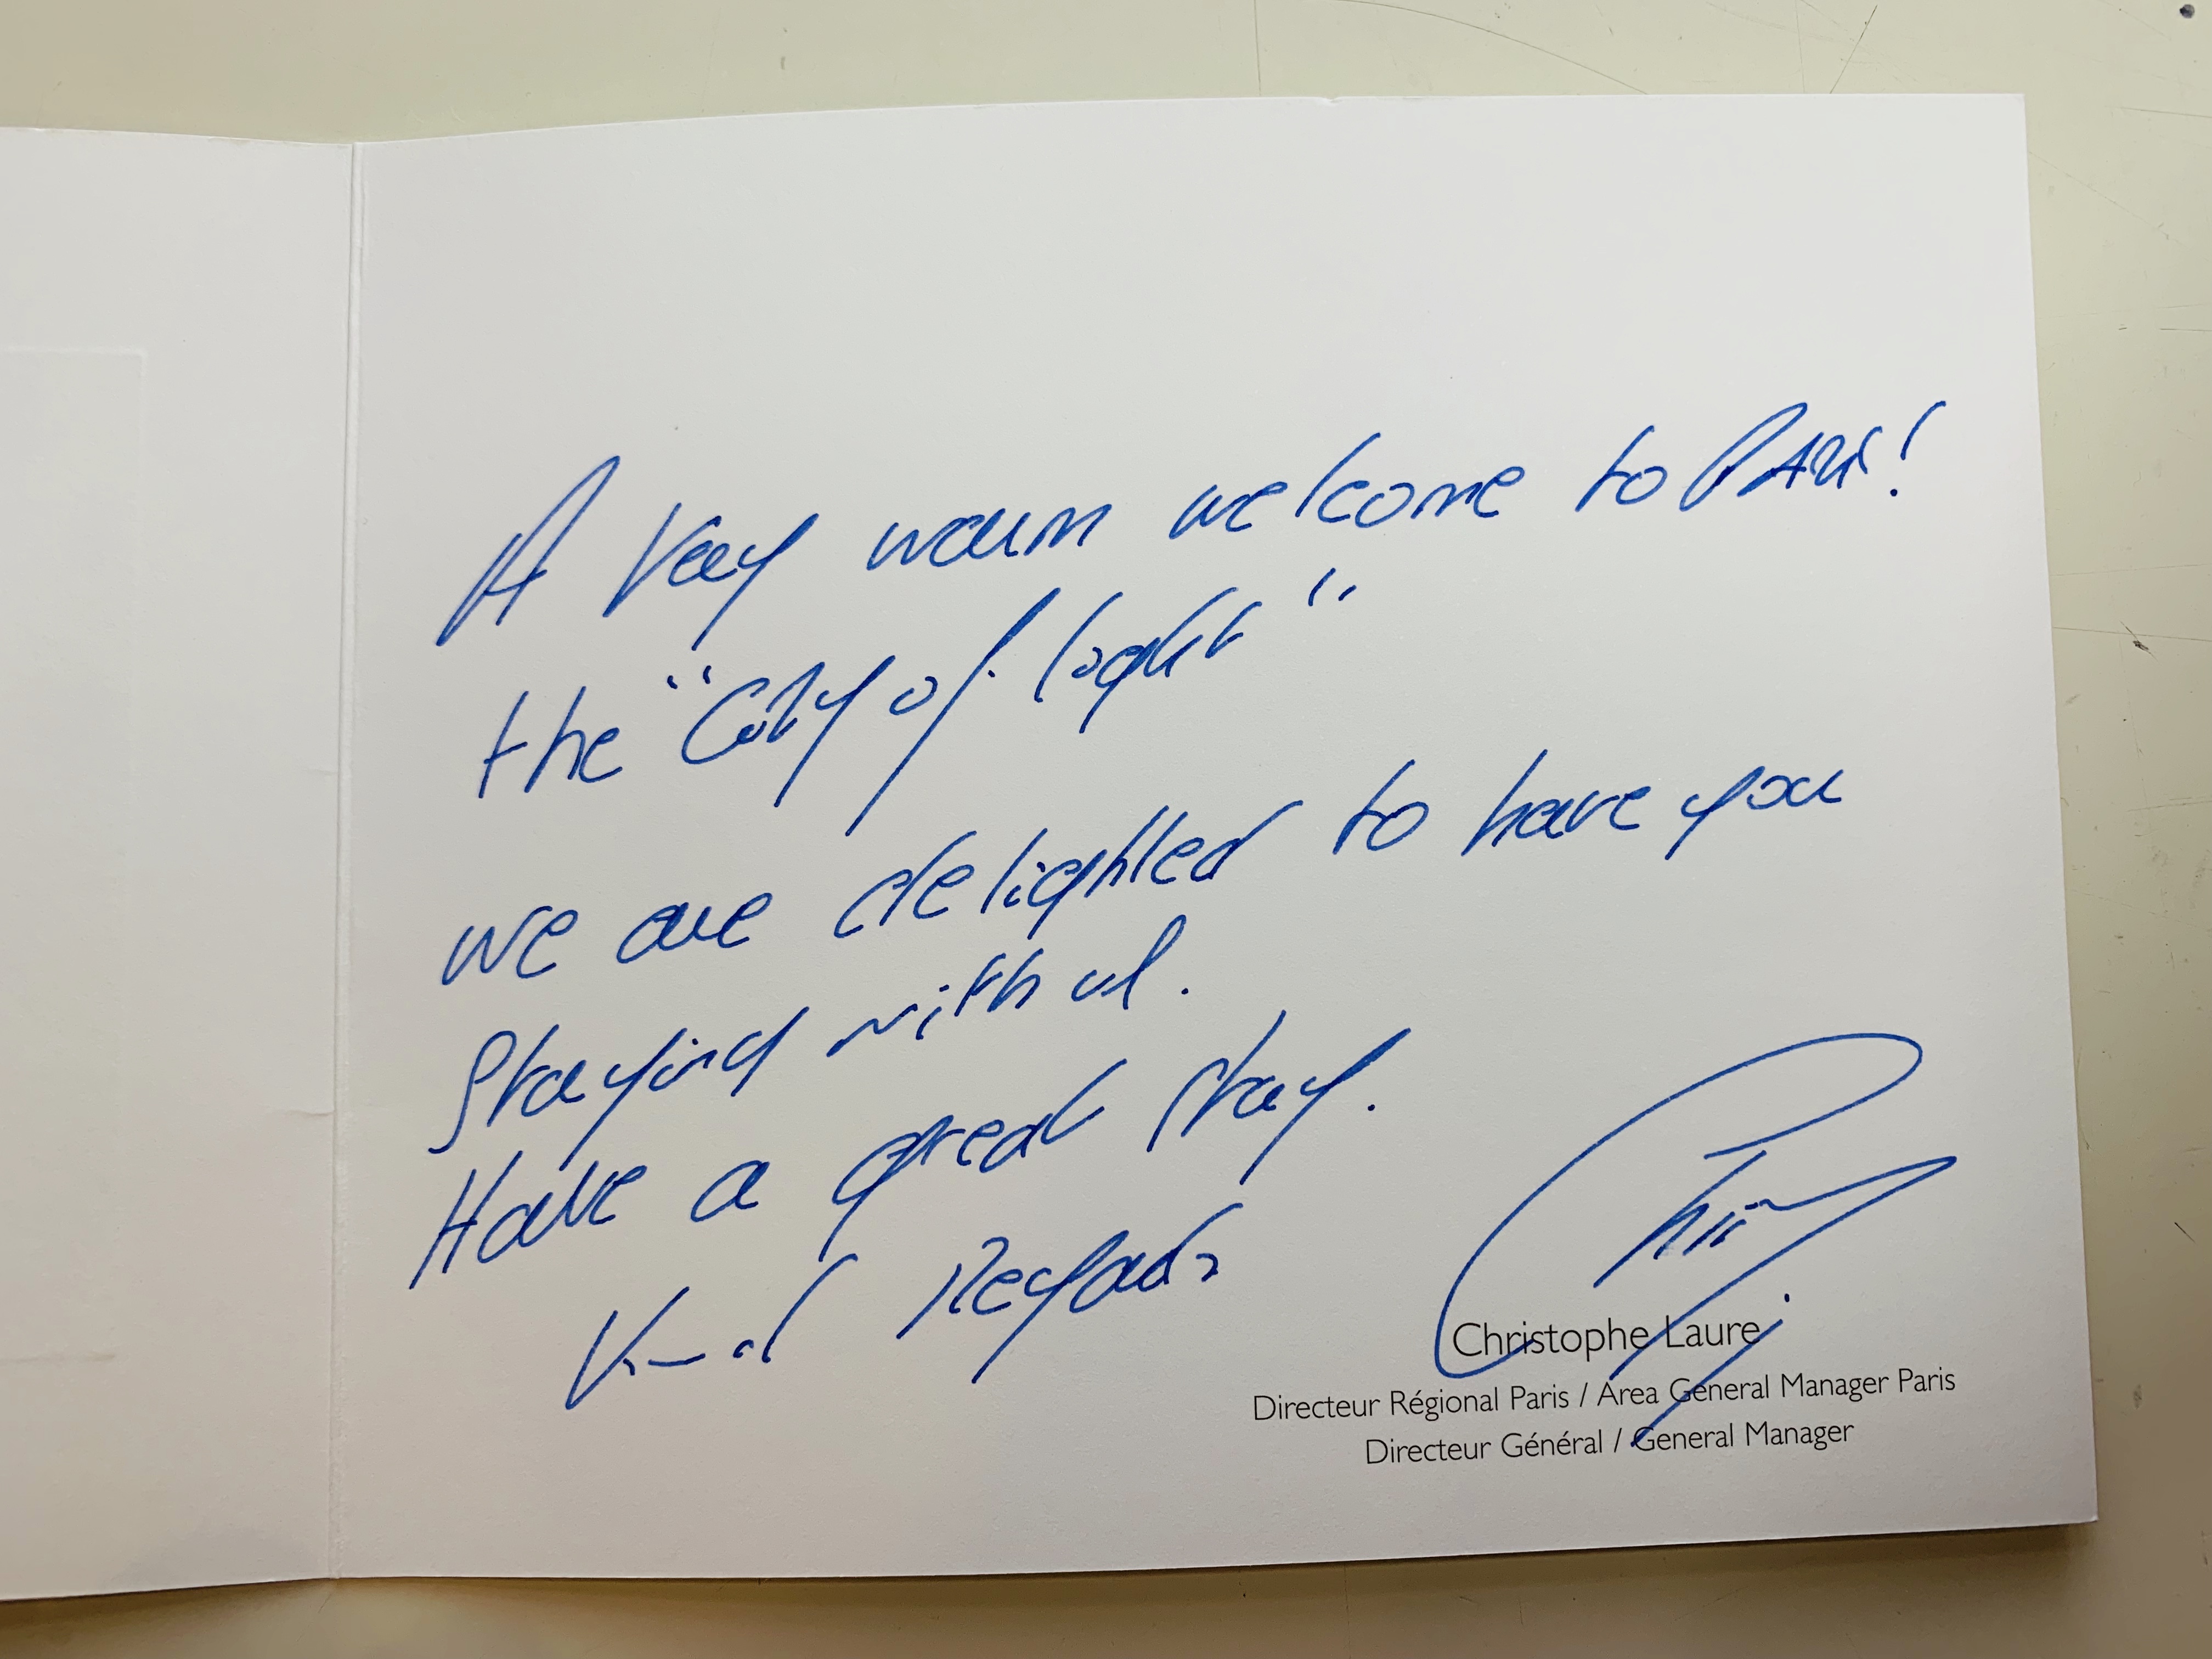 A very warm welcome to Paris!
the "City of light"
we are delighted to have you
staying with us.
Have a great stay.
Kind Regards
Christophe Laure
Directeur Régional Paris / Area General Manager Paris
Directeur Général / General Manager